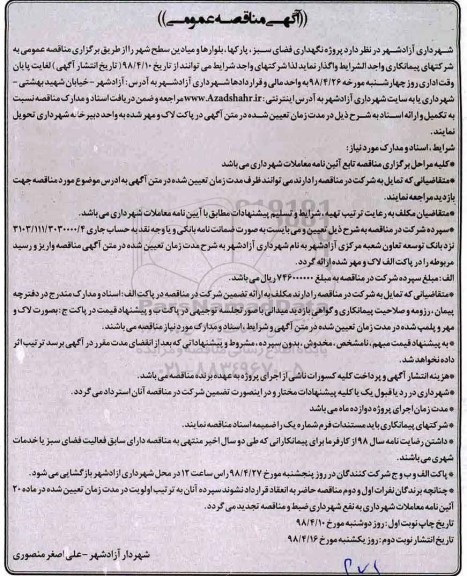 ((آگهی مناقصه عمومی))
شهرداری آزادشهر در نظر دارد پروژه نگهداری فضای سبز، پارکها، بلوارها و میادین سطح شهر را از طریق برگزاری مناقصه عمومی به
شرکتهای پیمانکاری واجد الشرایط واگذار نماید لذا شرکتهای واجد شرایط می توانند از تاریخ ۹۸/۴/۱۰( تاریخ انتشار آگهی ) لغایت پایان
وقت اداری روز چهارشنبه مورخه ۹۸/۴/۲۶ به واحد مالی و قراردادها شهرداری آزادشهر به آدرس: آزادشهر - خیابان شهید بهشتی -
شهرداری یا به سایت شهرداری آزادشهر به آدرس اینترنتی: www.Azadshahr.ir مراجعه و ضمن دریافت اسناد و مدارک مناقصه نسبت
به تکمیل و ارائه اسناد به شرح ذیل در مدت زمان تعیین شده در متن آگهی در پاکت لاک و مهر شده به واحد دبیرخانه شهرداری تحویل
نمایند.
شرایط، اسناد و مدارک مورد نیاز:
*کلیه مراحل برگزاری مناقصه تابع آئین نامه معاملات شهرداری می باشد
*متقاضیانی که تمایل به شرکت در مناقصه را دارند می توانند ظرف مدت زمان تعیین شده در متن آگهی به آدرس موضوع مورد مناقصه جهت
بازدید مراجعه نمایند.
*متقاضیان مکلف به رعایت ترتیب تهیه، شرایط و تسلیم پیشنهادات مطابق با آیین نامه معاملات شهرداری می باشد.
*سپرده شرکت در مناقصه به شرح ذیل تعیین و می بایست به صورت ضمانت نامه بانکی و یا وجه نقد به حساب جاری ۳۱۰۳/۱۱۱/۳۰۳۰۰۰۰/۴
نزد بانک توسعه تعاون شعبه مرکزی آزادشهر به نام شهرداری آزادشهر به شرح مدت زمان تعیین شده در متن آگهی مناقصه واریز و رسید
مربوطه را در پاکت الف لاک و مهر شده ارائه گردد.
الف: مبلغ سپرده شرکت در مناقصه به مبلغ ۷۴۶۰۰۰۰۰۰ ریال می باشد.
*متقاضیانی که تمایل به شرکت در مناقصه را دارند مکلف به ارائه تضمین شرکت در مناقصه در پاکت الف: اسناد و مدارک مندرج در دفترچه
پیمان، رزومه و صلاحیت پیمانکاری و گواهی بازدید میدانی با صور تجلسه توجیهی در پاکت ب و پیشنهاد قیمت در پاکت ج: بصورت لاک و
مهر و پلمپ شده در مدت زمان تعیین شده در متن آگهی و شرایط، اسناد و مدارک مورد نیاز مناقصه می باشند.
*به پیشنهاد قیمت مبهم، نامشخص، مخدوش، بدون سپرده، مشروط و پیشنهاداتی که بعد از انقضای مدت مقرر در آگهی برسد ترتیب اثر
داده نخواهد شد.
*هزینه انتشار آگهی و پرداخت کلیه کسورات ناشی از اجرای پروژه به عهده برنده مناقصه می باشد.
*شهرداری در رد یا قبول یک یا کلیه پیشنهادات مختار و در اینصورت تضمین شرکت در مناقصه آنان استرداد می گردد.
*مدت زمان اجرای پروژه دوازده ماه می باشد
*شرکتهای پیمانکاری باید مستندات فرم شماره یک را ضمیمه اسناد مناقصه نمایند.
*داشتن رضایت نامه سال ۹۸ از کارفرما برای پیمانکارانی که طی دو سال اخیر منتهی به مناقصه دارای سابق فعالیت فضای سبز یا خدمات
شهری می باشند.
*پاکت الف و ب و ج شرکت کنندگان در روز پنجشنبه مورخ ۹۸/۴/۲۷ راس ساعت ۱۲ در محل شهرداری آزادشهر بازگشایی می شود.
*چنانچه برندگان نفرات اول و دوم مناقصه حاضر به انعقاد قرارداد نشوند سپرده آنان به ترتیب اولویت در مدت زمان تعیین شده در ماده ۲۰
آئین نامه معاملات شهرداری به نفع شهرداری ضبط و مناقصه تجدید می گردد.
تاریخ چاپ نوبت اول: روز دوشنبه مورخ ۹۸/۴/۱۰
تاریخ انتشار نوبت دوم: روز یکشنبه مورخ ۹۸/۴/۱۶
شهردار آزادشهر - علی اصغر منصوری